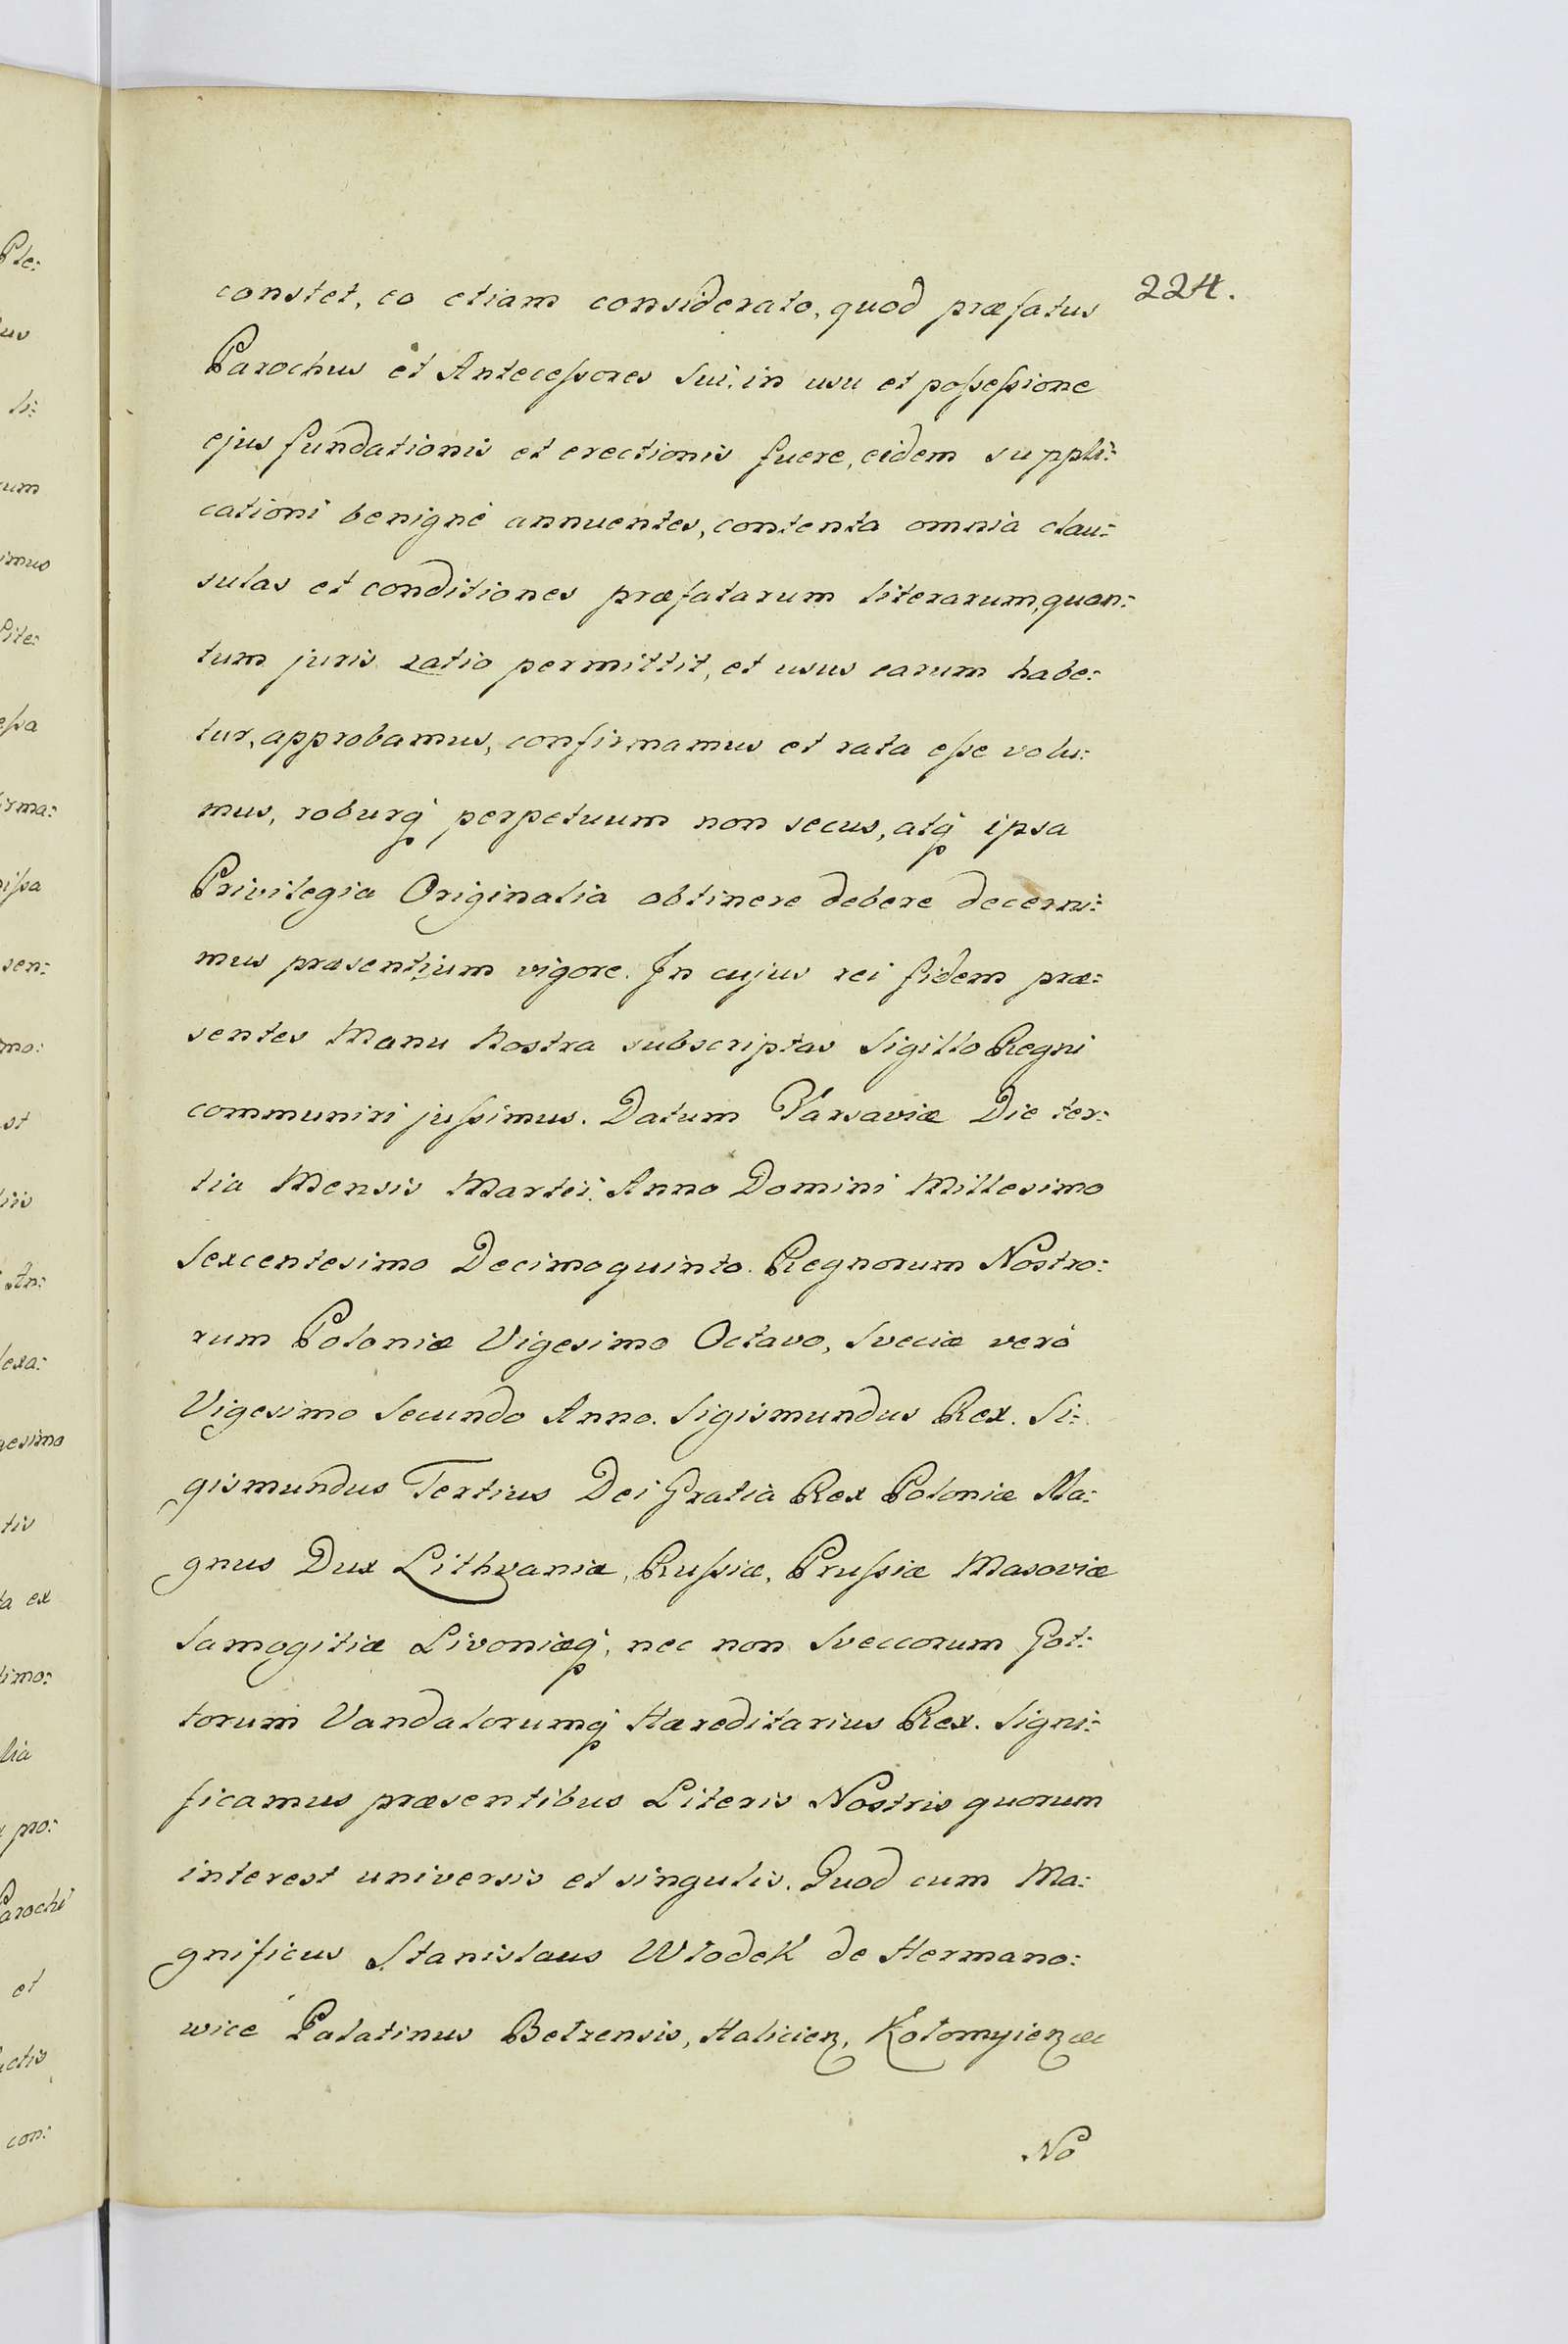 224.
constet, eo etiam considerato, quod præfatus
Parochus et Anteceſsores Sui, in usu et poſseſsione
ejus fundationis et erectionis fuere, eidem suppli:
cationi benignè annuentes, contenta omnia clau:
sulas et conditiones præfatarum literarum, quan:
tum juris ratio permittit, et usus earum habe:
tur, approbamus, confirmamus et rata eſse volu:
mus, roburq perpetuum non secus, atq ipsa
Privilegia Originalia obtinere debere decerni:
mus præsentium vigore. In cujus rei fidem præ:
sentes Manu Nostra subscriptas Sigillo Regni
communiri juſsimus. Datum Varsaviæ Die ter:
tia Mensis Martii. Anno Domini Millesimo
Sexcentesimo Decimoquinto. Regnorum Nostro:
rum Poloniæ Vigesimo Octavo, Sveciæ verò
Vigesimo Secundo Anno. Sigismundus Rex. Si:
gismundus Tertius Dei Gratia Rex Poloniæ Ma:
gnus Dux Lithvaniæ, Ruſsiæ, Pruſsiæ Masoviæ
Samogitiæ Livoniæq, nec non Sveccorum Got:
torum Vandalorumq Hæreditarius Rex. Signi:
ficamus præsentibus Literis Nostris quorum
interest universis et singulis. Quod cum Ma:
gnificus Stanislaus Wlodek de Hermano:
wice Palatinus Belzensis, Halicien, Kolomyien &c
No
Ple:
li:
imus
eſsa
irma:
sen:
mo:
st
An:
lexa:
gesimo
ta ex
timo:
pro:
Parochi
et
con: